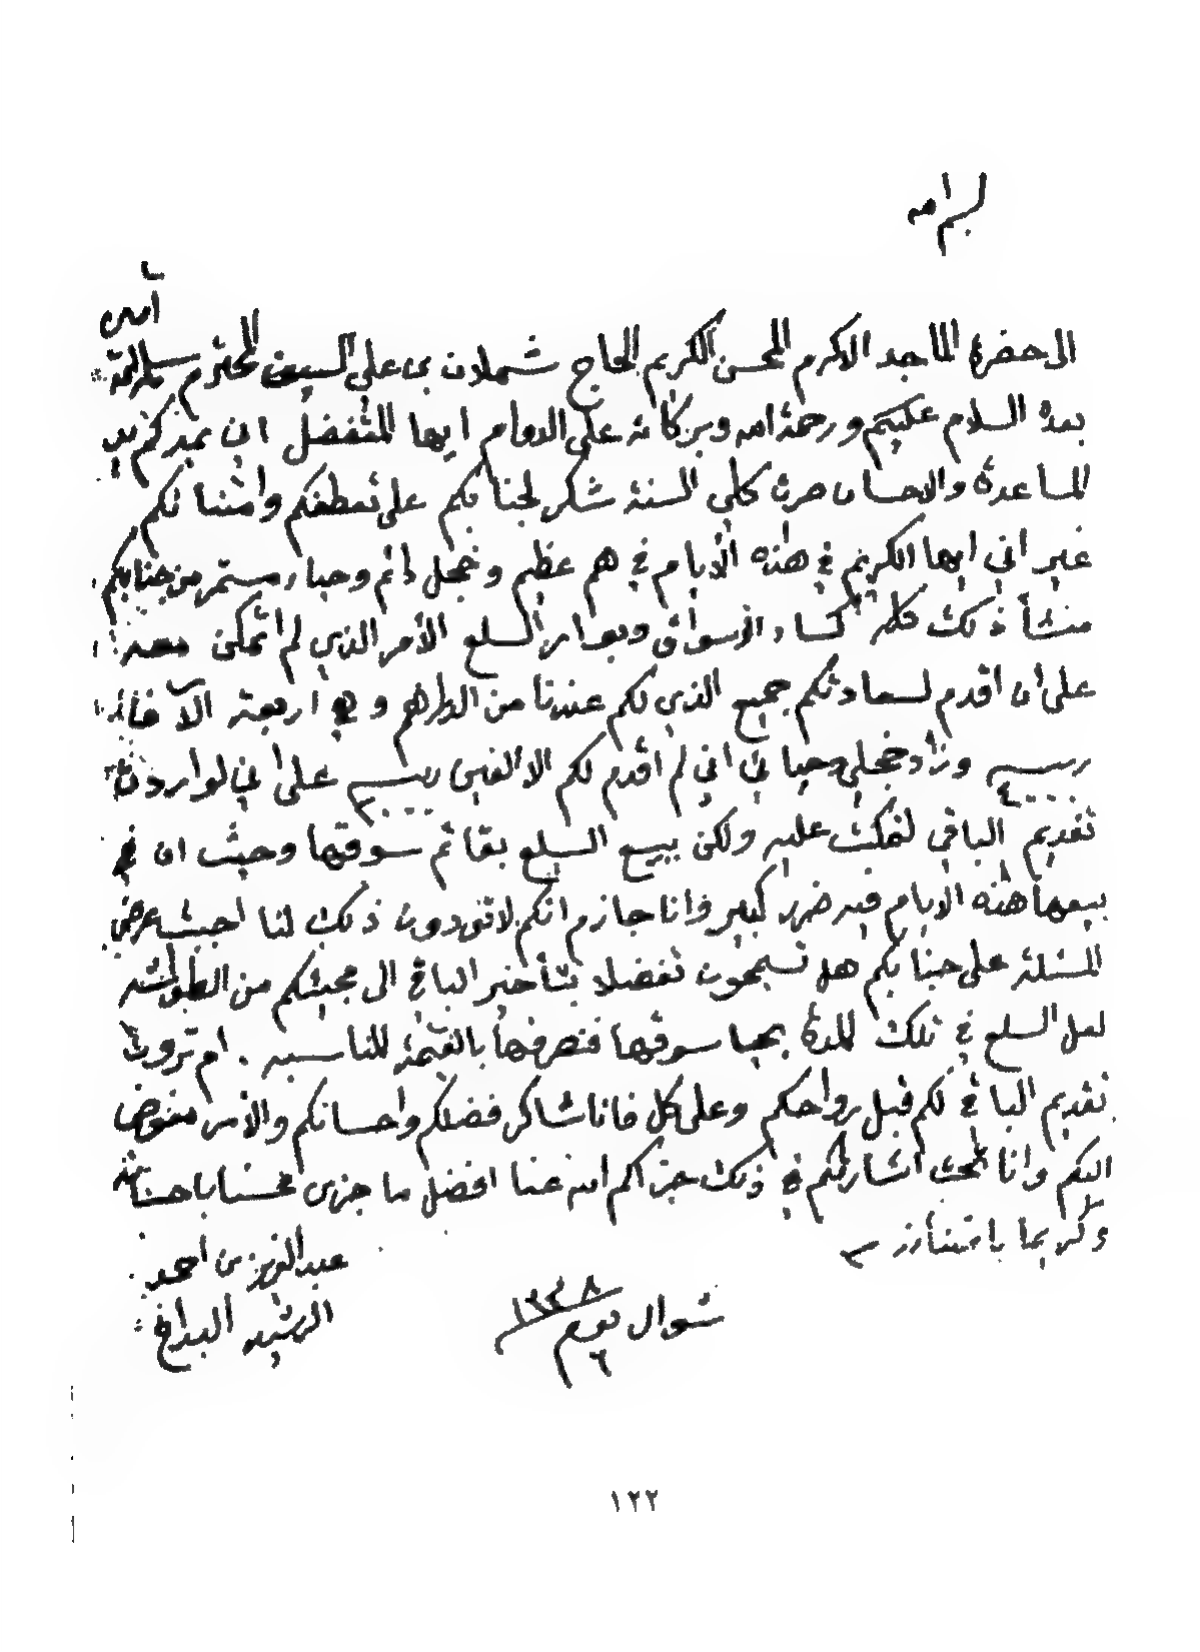 بسم الله
الى حضرة الماجد الاكرم المحسن الكريم الحاج شملان بن علي السيف المحترم سلمه الله
آمين
بعد السلام عليكم ورحمة الله وبركاته على الدوام ايها المتفضل ان
المساعدة والاحسان حرت كلي السنة شكر لجنابكم على تعطفكم وامتنانكم
غير اني ايها الكريم في هذه الأيام في هم عظيم وخجل دائم وحياء مستمر من جنابكم
منشأ ذلك كله كساد الاسواق وبوار السلع الأمر الذي لم اتمكن معه
على ان اقدم لسعادتكم جميع الذي لكم عندنا من الدراهم وهو اربعة آلاف
ربية ٤٠٠٠ وزاد خجلي وحيائي اني لم أقدم لكم الا الفين ربية ٢٠٠٠ على اني لو اردت
تقديم الباقي لفكت عليه ولكن ببيع السلع بقائم سوقها وحيث ان في
بيعها هذه الايام فيه ضرر كبير وانا جازم انكم لا تودون ذلك لنا احببت عرض
المسئلة على جنابكم هل تسمحون تفضلا بتأخير الباقي الى مجيئكم من
لعل السلع في تلك المدة يحيا سوقها فنصرفها بالقيمة المناسبه . ام ترون
تقديم الباقي لكم قبل رواحكم وعلى كل فانا شاكر فضلكم واحسانكم والأمر مفوض
اليكم وانا تحت اشارتكم في ذلك جزاكم الله عنا افضل ما جزى محسنا باحسانه
وكريما بامتنانه
عبدالعزيز بن احمد
الرشيد البداح
شوال يوم ٦ ١٣٤٨
١٢٢